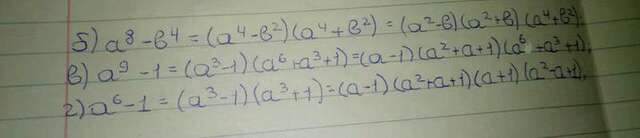 б) a⁸-в⁴=(a⁴-в²)(a⁴+в²)=(a²-в)(a²+в)(a⁴+в²).
в) a⁹-1=(a³-1)(a⁶+a³+1)=(a-1)(a²+a+1)(a⁶+a³+1),
г) a⁶-1=(a³-1)(a³+1)=(a-1)(a²+a+1)(a+1)(a²-a+1),